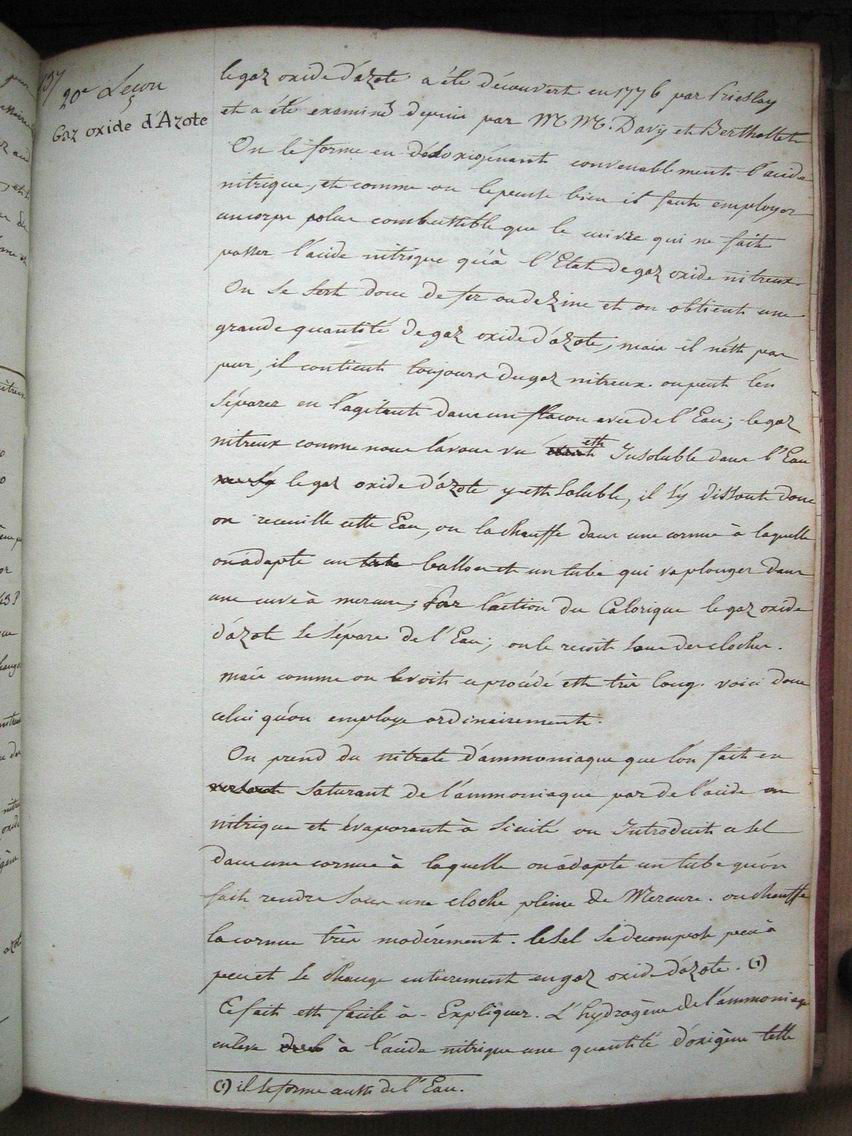 137
20e Leçon
Gaz oxide d'Azote
le gaz oxide d'azote a été découvert en 1776 par Priestley
et a été examiné depuis par M.M. Davy et Berthollet
On le forme en désoxigénant convenablement l'acide
nitrique, et comme on le pense bien il faut employer
un corps plus combustible que le cuivre qui ne fait
passer l'acide nitrique qu'à l'Etat de gaz oxide nitreux
On se sert donc de fer ou de zinc et on obtient une
grande quantité de gaz oxide d'azote, mais il n'est pas
pur, il contient toujours du gaz nitreux. on peut l'en
séparer en l'agitant dans un flacon avec de l'Eau; le gaz
nitreux comme nous l'avons vu est Insoluble dans l'Eau
le gaz oxide d'azote y est Soluble, il s'y dissout donc
on recueille cette Eau, on la chauffe dans une cornue à laquelle
on adapte un ballon et un tube qui va plonger dans
une cuve à mercure; par l'action du Calorique le gaz oxide
d'azote se sépare de l'Eau; on le reçoit sous des cloches.
mais comme on le voit ce procédé est très long. voici donc
celui qu'on employe ordinairement.
On prend du nitrate d'ammoniaque que l'on fait en
saturant de l'ammoniaque par de l'acide
nitrique et évaporant à siccité on Introduit ce sel
dans une cornue à laquelle on adapte un tube qu'on
fait rendre sous une cloche pleine de Mercure. on chauffe
la cornue très modérément. le sel se decompose peu à
peu et se change entierement en gaz oxide d'azote. (1)
Ce fait est facile à Expliquer. L'hydrogène de l'ammoniaque
enleve à l'acide nitrique une quantité d'oxigène telle
(1) il se forme aussi de l'Eau.